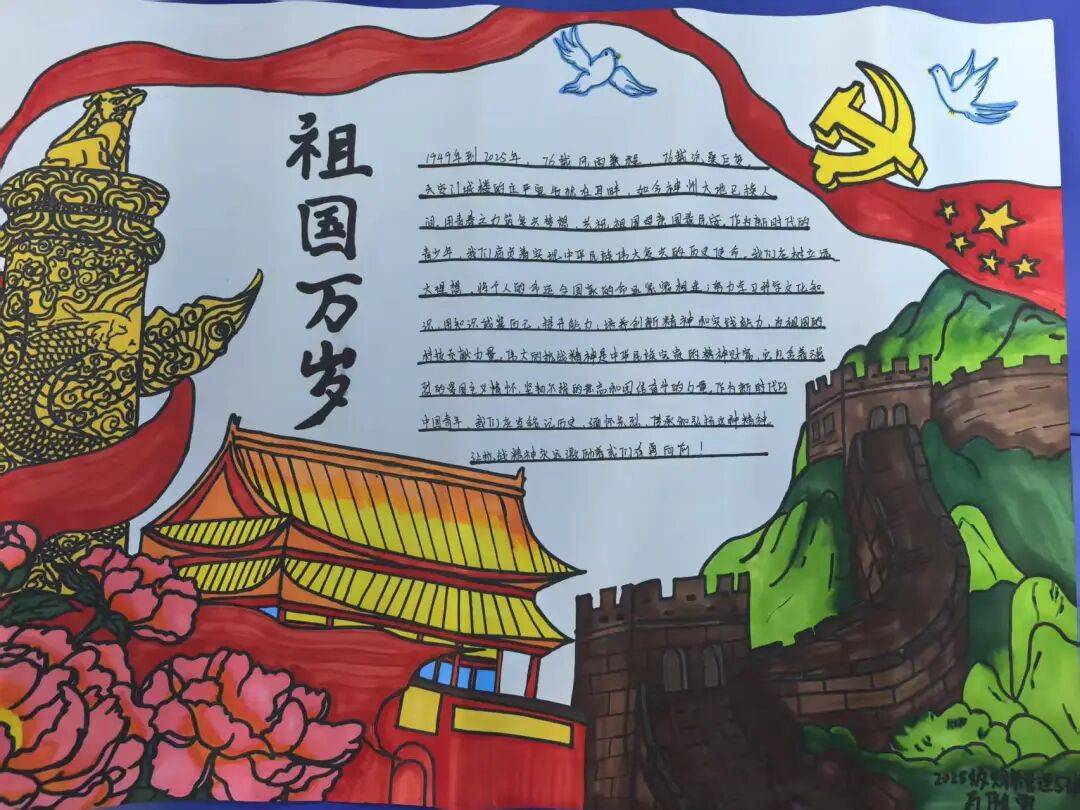 祖国万岁
1949年到2025年，76载风雨兼程，76载沧桑巨变，
天安门城楼的庄严宣告犹在耳畔，如今神州大地已换人
间，用青春之力筑复兴梦想，共祝祖国母亲国泰民安，作为新时代的
青少年，我们肩负着实现中华民族伟大复兴的历史使命，我们应树立远
大理想，将个人的命运与国家的命运紧紧相连；努力学习科学文化知
识，用知识武装自己，提升能力，培养创新精神和实践能力，为祖国的
科技贡献力量，伟大的抗战精神是中华民族宝贵的精神财富，
烈的爱国主义情怀，坚韧不拔的 和团结奋斗的力量，作为新时代的
中国青年，我们应当铭记历史，缅怀先烈，传承和弘扬这种精神，
让抗战精神永远激励着我们 勇向前！
2025级